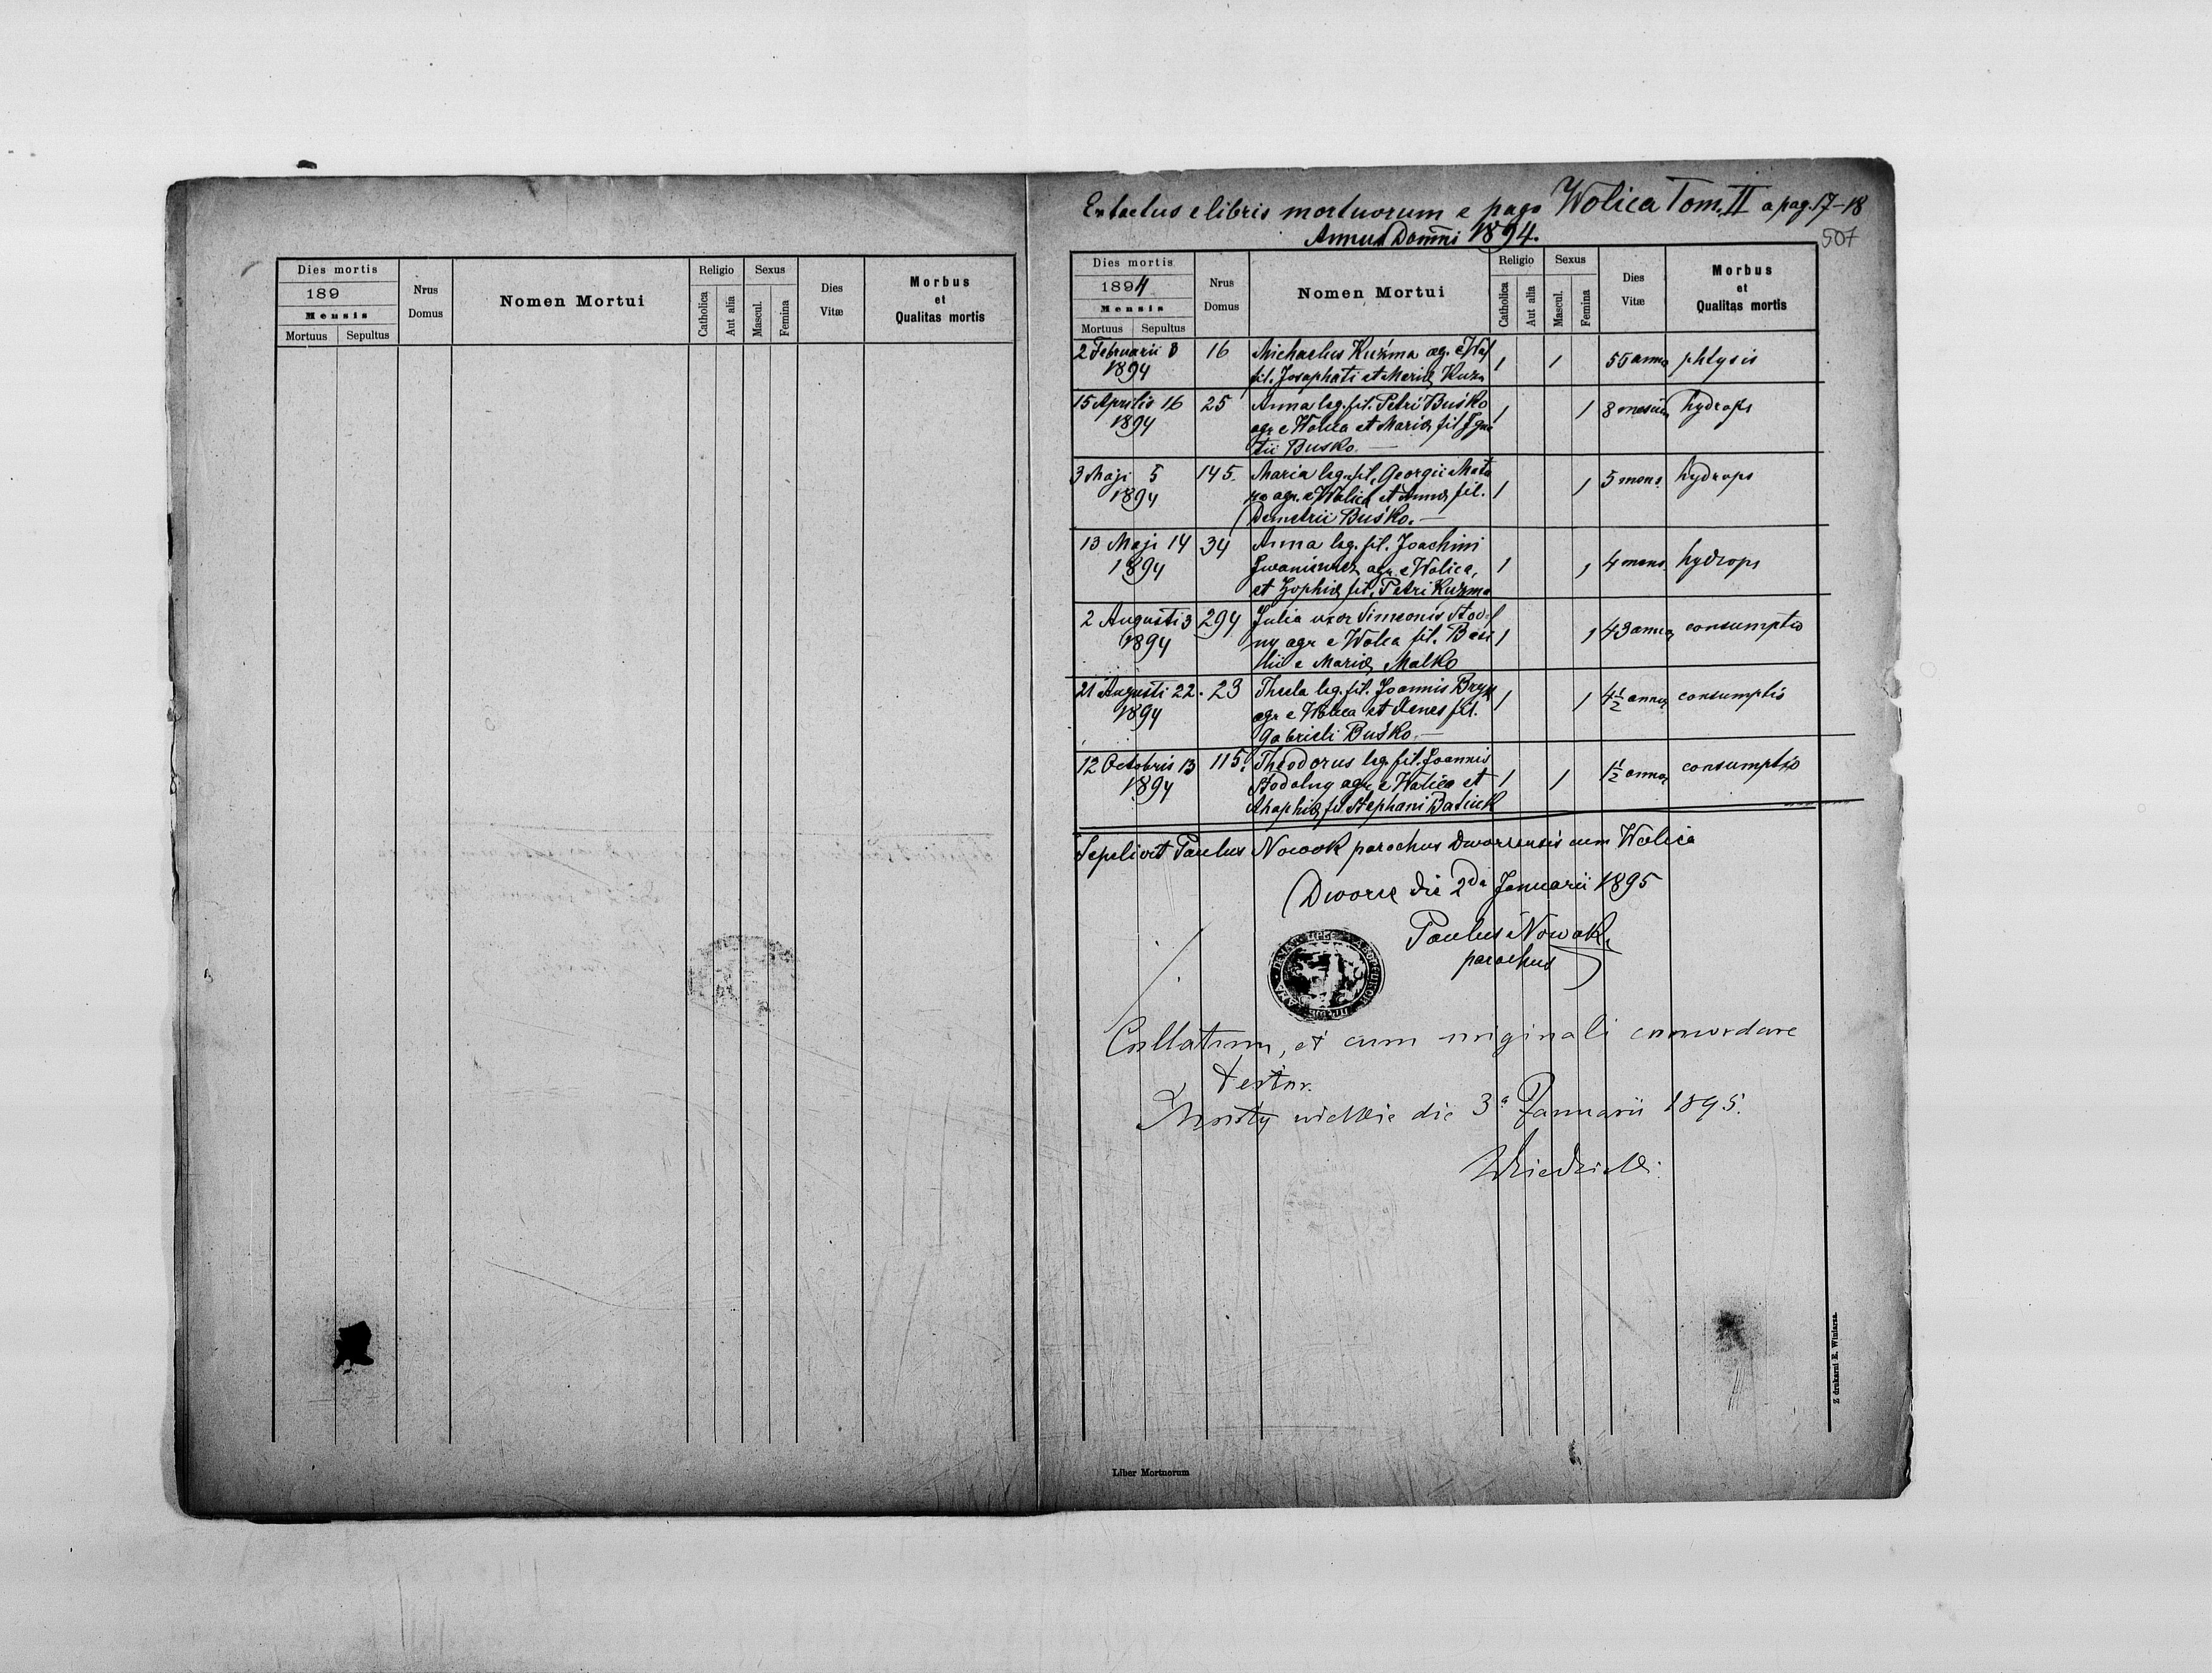 Dies mortis
189
Mensis
Mortuus Sepultus
Nrus Domus
Nomen Mortui
Religio
Catholica
Aut alia
Sexus
Mascul.
Femina
Dies Vitæ
Morbus
et
Qualitas mortis
Extactus e libris mortuorum e pago Wolica Tom. II a pag. 17-18
Annus Domini 1894.
507
Dies mortis
1894
Mensis
Mortuus Sepultus
Nrus Domus
Nomen Mortui
Religio
Catholica
Aut alia
Sexus
Mascul.
Femina
Dies Vitæ
Morbus
et
Qualitas mortis
2 Februarii 3 16 Michaelus Kuźma agr. e Wol
1894 fil. Josaphati et Mariæ Kuzm 1 1 55 anno phtysis
15 Aprilis 16 25 Anna leg. fil. Petri Buśko
1894 agr. e Wolica et Mariæ fil Igna 1 1 8 hydrops
tii Busko.
3 Maji 5 145. Maria leg. fil. Georgii
1894 agr. e Wolica et Annæ fil. 1 1 5 mens. hydrops
Demetrii Buśko.
13 Maji 14 34 Anna leg. fil. Joachimi
1894 Iwaniewicz agr. e Wolica, 1 1 4 mens. hydrops
et Zophiæ fil. Petri Kuźma
2 Augusti 3 294 Julia uxor Simeonis Stodol
1894 ny agr e Wolca fil. Basi 1 1 43 annor consumptio
lii e Mariæ Malko
21 Augusti 22. 23 Thecla leg. fil. Joannis
1894 agr e Wolica et fil. 1 1 4 1/2 annor consumptio
Gabrieli Buśko.
12 Octobris 13 115. Theodorus leg. fil. Joannis
1894 Stodolny agr. e Wolica et 1 1 1 1/2 annor consumptio
Ahaphiæ fil. Stephani
Sepelivit Paulus Nowak parochus Dworzensis cum Wolica
Dworce die 2da Januarii 1895
Paulus Nowak
parochus
Collatum, et cum originali concordare
testor.
Mosty wielkie die 3a Januarii 1895.
Z drukarni E. Winiarza.
Liber Mortuorum